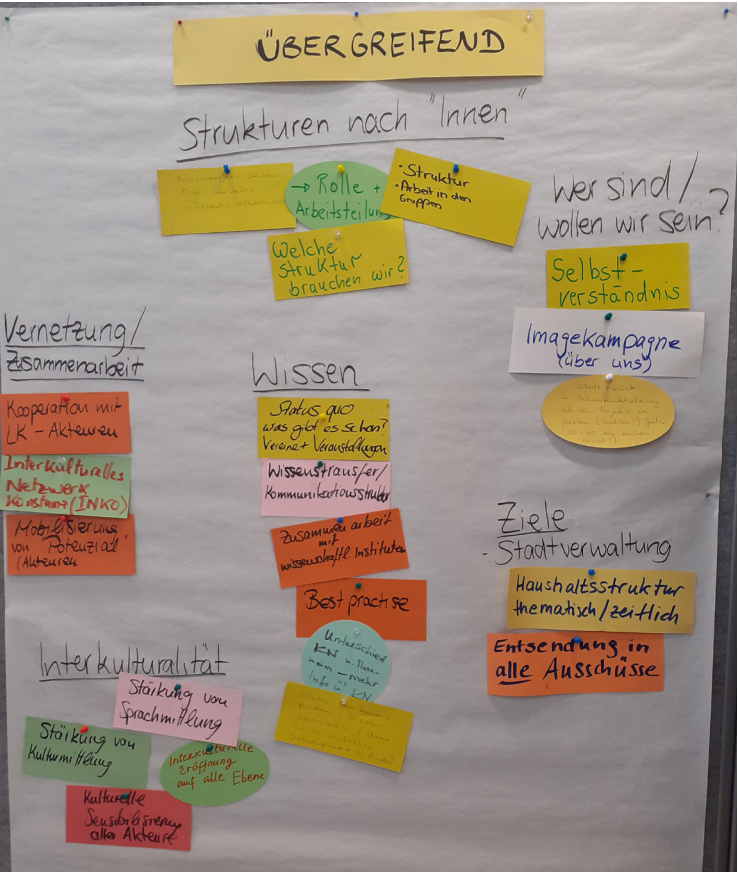 ÜBERGREIFEND
Strukturen nach "Innen"
→ Rolle +
Arbeitsteilung
• Struktur
• Arbeit in den
Gruppen
Welche
Struktur
brauchen wir?
Wer sind/
wollen wir sein?
Selbst-
verständnis
Imagekampagne
(über uns)
Vernetzung/
Zusammenarbeit
Kooperation mit
LK-Akteuren
Interkulturelles
Netzwerk
Konstanz (INKO)
Mobilisierung
von "Potenzial"
Wissen
Status quo
was gibt es schon?
Vereine + Veranstaltungen
Wissenstransfer/
Zusammenarbeit
mit
wissenschaftl. Instituten
Best practise
Unterschied
KN
Info
KN
Ziele
- Stadtverwaltung
Haushaltsstruktur
thematisch/zeitlich
Entsendung in
alle Ausschüsse
Interkulturalität
Stärkung von
Sprachmittlung
Stärkung von
Kulturmittlung
Interkulturelle
Eröffnung
auf alle Ebene
Kulturelle
Sensibilisierung
aller Akteure